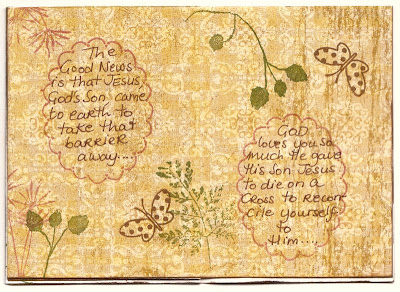 The
Good News
is that Jesus,
God's Son came
to earth to
take that
barrier
away....
God
loves you so
much He gave
His Son Jesus
to die on a
Cross to recon
cile yourself
to
Him....